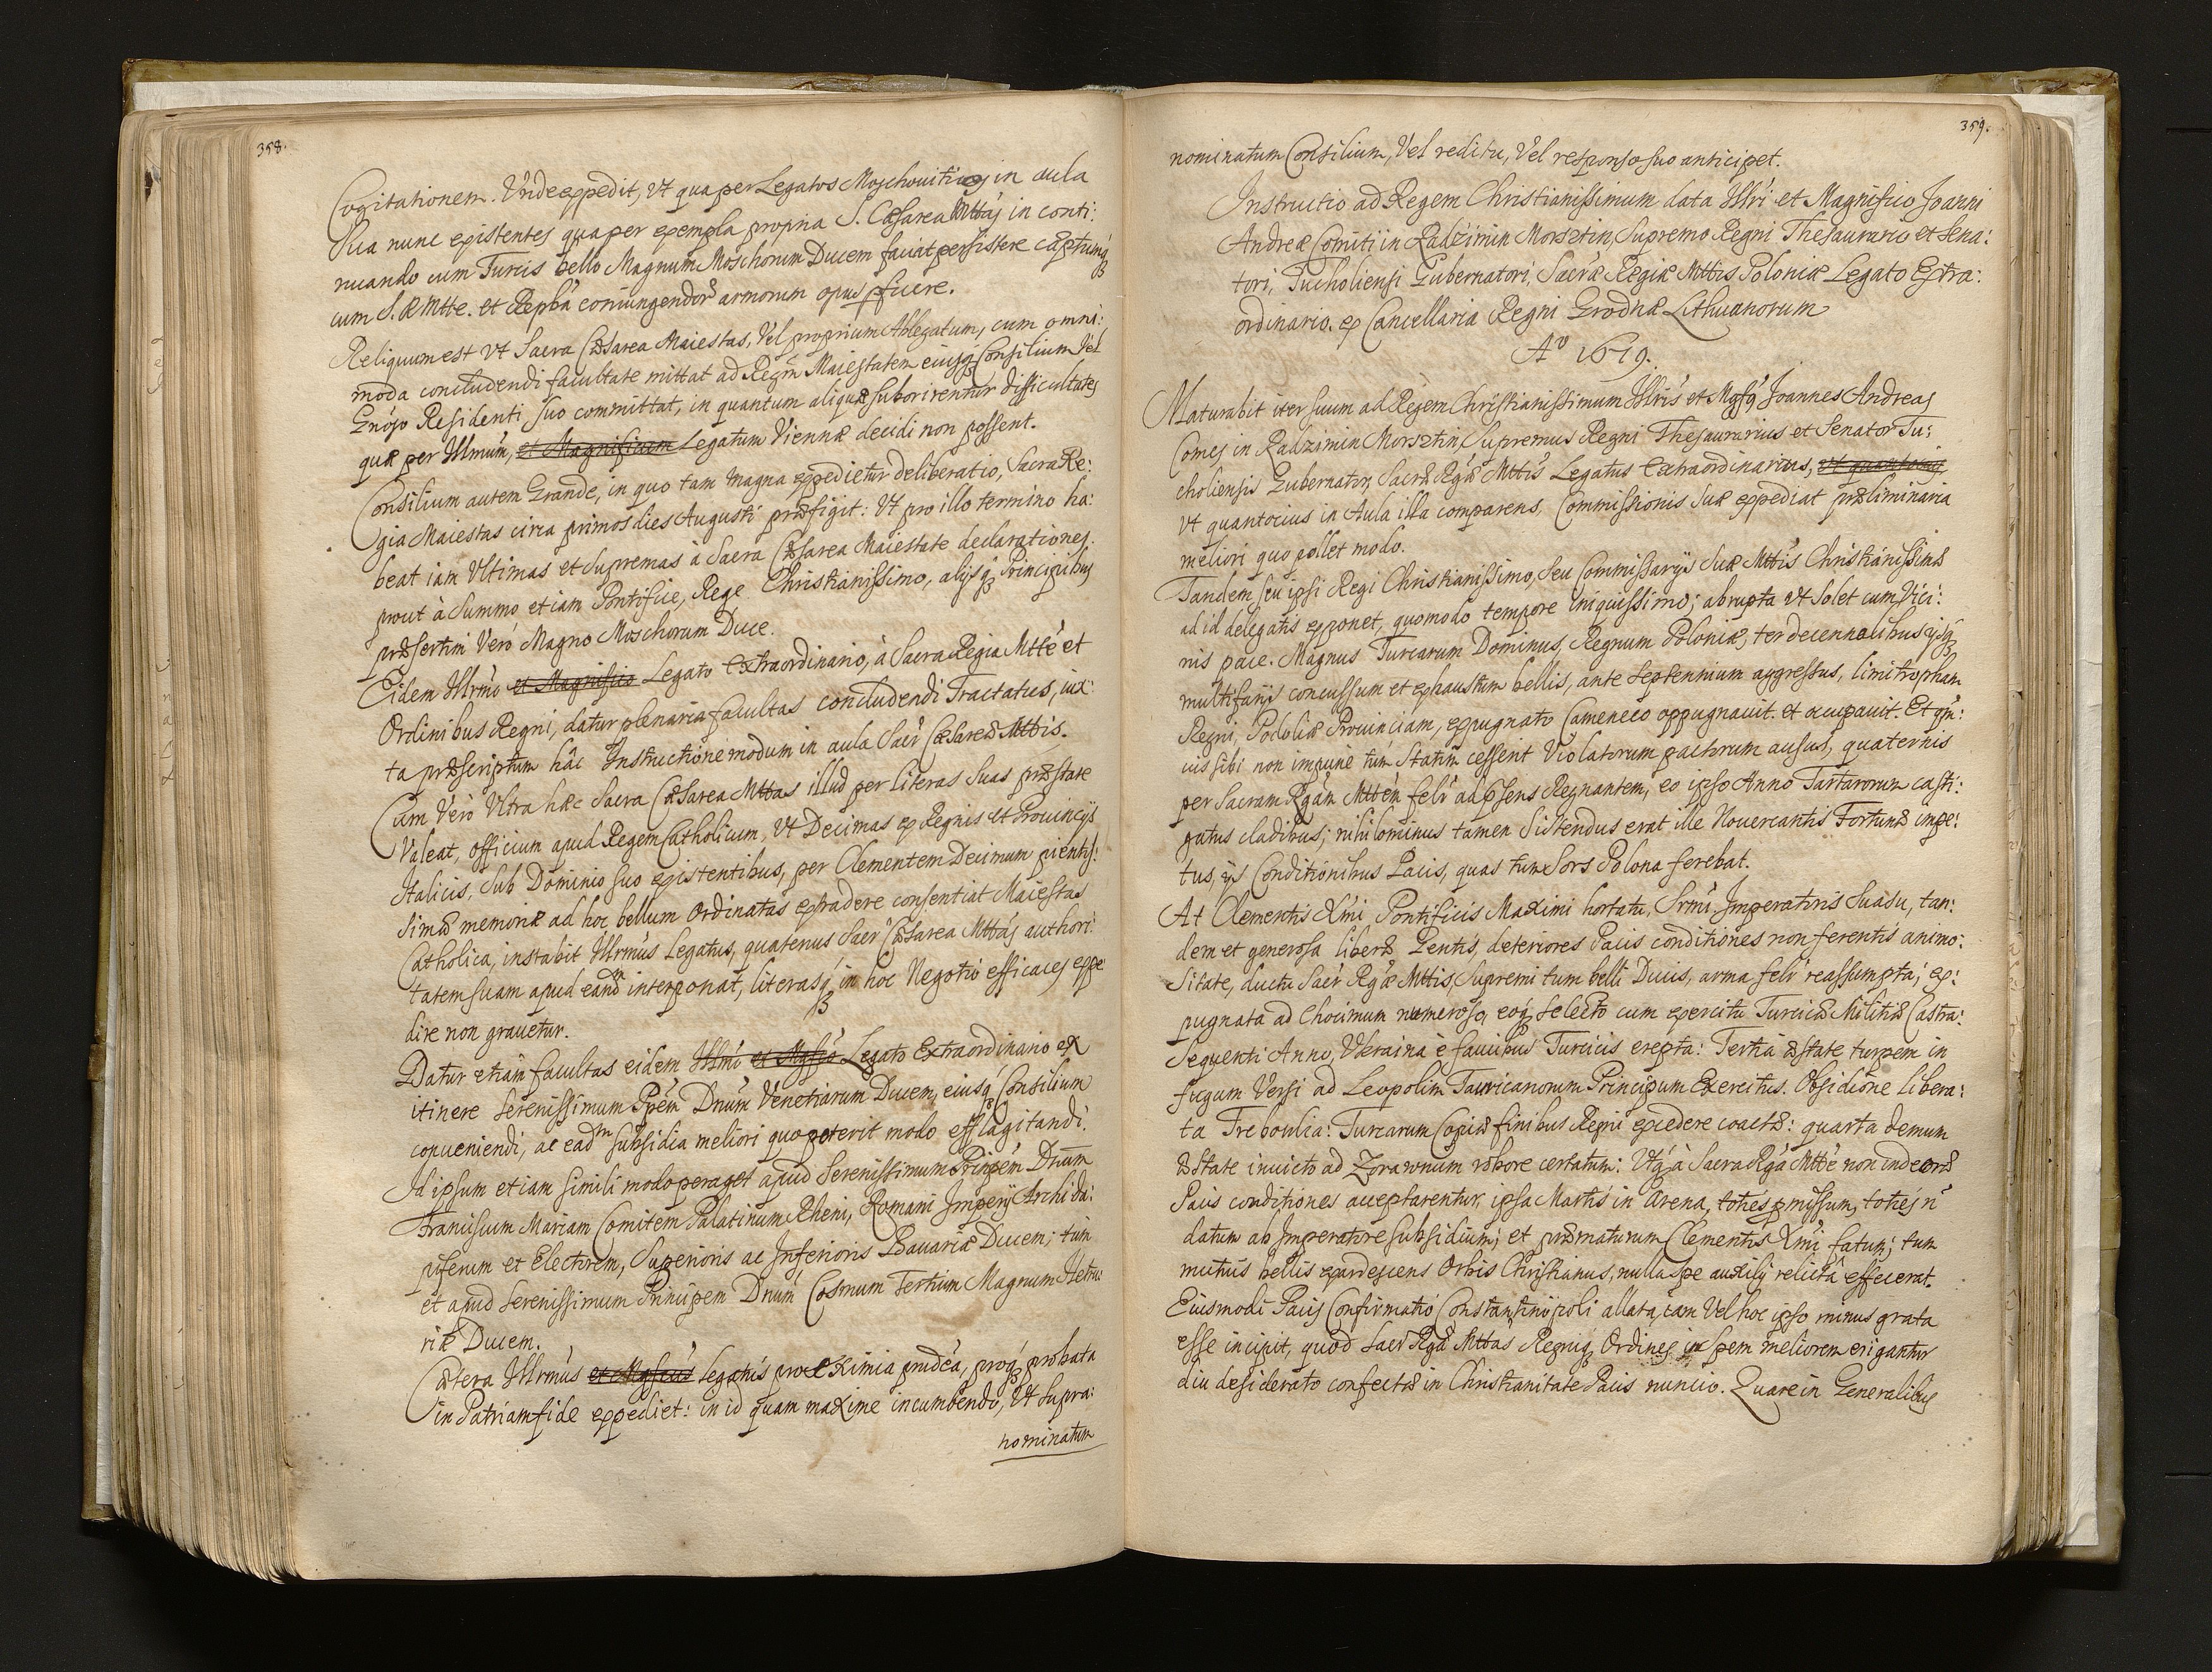 358.
Cogitationem. Unde expedit, Vt qua per Legatos Moschouiticos in aula
Sua nunc existentes qua per exempla propria S. Cæsarea Mttas in conti:
nuando cum Turcis bello Magnum Moschorum Ducem faciat persistere captumq
cum S. R Mtte. et Repba coniungendor armorum opus pficere.
Reliquum est Vt Sacra Cæsarea Maiestas, Vel proprium Ablegatum, cum omni:
moda concludendi facultate mittat ad Regm Maiestatem eiusq Consilium Vel
Gnoso Residenti suo committat, in quantum aliquæ suborirentur difficultates
quæ per Illmum, et Magnificum Legatum Viennæ decidi non possent.
Consilium autem Grande, in quo tam magna expedietur deliberatio, Sacra Re:
gia Maiestas circa primos dies Augusti præfigit: Vt pro illo termino ha:
beat iam Vltimas et Supremas à Sacra Cæsarea Maiestate declarationes.
prout à Summo etiam Pontifice, Rege Christianissimo, alijsq Principibus
præsertim Vero Magno Moschorum Duce.
Eidem Illrmo et Magnifico Legato Extraordinario, à Sacra Regia Mtte et
Ordinibus Regni, datur plenaria facultas concludendi Tractatus, iux:
ta præscriptum hâc Instructione modum in aula Sacr Cæsareæ Mttis.
Cum Verò Vltra hæc Sacra Cæsarea Mttas illud per literas suas præstare
Valeat, officium apud Regem Catholicum, Vt Decimas ex Regnis et Prouincijs
Italicis, sub Dominio suo existentibus, per Clementem Decimum pientis:
simæ memoriæ ad hoc bellum Ordinatas extradere consentiat Maiestas
Catholica, instabit Illrmus Legatus, quatenus Sacr Cæsarea Mttas authori:
tatem suam apud eand interponat, literasq in hoc Negotio efficaces expe
dire non grauetur.
Datur etiam facultas eidem Illmo et Mgfco Legato Extraordinario ex
itinere Serenissimum Ppem Dnum Venetiarum Ducem, eiusq Consilium
conueniendi, ac eadm subsidia meliori quo poterit modo efflagitandi.
Id ipsum etiam simili modo peraget apud Serenissimum Prinpem Dnum
Franciscum Mariam Comitem Palatinum Rheni, Romani Imperij Archida:
piferum et Electorem, Superioris ac Inferioris Bauariæ Ducem; tum
et apud Serenissimum Principem Dnum Cosmum Tertium Magnum Hetru:
riæ Ducem.
Cætera Illrmus et Mgfcus legatus pro eximia prudca, proq probata
in Patriam fide expediet: in id quam maxime incumbendo, Vt supra:
nominatum
359.
nominatum Consilium, Vel reditu, Vel responso suo anticipet.
Instructio ad Regem Christianissimum data Illri et Magnifico Joanni
Andreæ Comiti in Radzimin Morsztin, Supremo Regni Thesaurario et Sena:
tori, Tucholiensi Gubernatori, Sacræ Regiæ Mttis Poloniæ Legato Extra:
ordinario. ex Cancellaria Regni Grodnæ Lithuanorum
Ao 1679.
Maturabit iter suum ad Regem Christianissimum Illris et Mgfq Joannes Andreas
Comes in Radzimin Morsztin, Supremus Regni Thesaurarius et Senator Tu:
choliensis Gubernator, Sacræ Rgæ Mttis Legatus Extraordinarius, vt quantocius
vt quantocius in Aula illa comparens, Commissionis suæ expediat præliminaria
meliori quo pollet modo.
Tandem seu ipsi Regi Christianissimo, seu Commissarijs suæ Mttis Christianissimæ
ad id delegatis exponet, quomodo tempore iniquissimo; abrupta vt solet cum Vici:
nis pace. Magnus Turcarum Dominus, Regnum Poloniæ, ter decennalibus ijsq
multifarijs concussum et exhaustum bellis, ante Septennium aggressus, limitropham
Regni, Podoliæ Prouinciam, expugnato Cameneco oppugnauit. et occupauit. Et qm:
uis sibi non impune tum statim cesserit Violatorum pactorum ausus, quaternis
per Sacram Rgam Mttem felr adpsens Regnantem, eo ipso Anno Tartarorum casti:
gatus cladibus; nihilominus tamen sistendus erat ille Nouercantis Fortunæ impe:
tus, ijs Conditionibus Pacis, quas tum Sors Polona ferebat.
At Clementis Xmi Pontificis Maximi hortatu, Srmi Imperatoris suasu, tan:
dem et generosa liberæ Gentis, deteriores Pacis conditiones non ferentis animo:
sitate, ductu Sacr Rgæ Mttis, Supremi tum belli Ducis, arma felr reassumpta; ex:
pugnata ad Chocimum numeroso, eoq selecto cum exercitu Turcicæ Militiæ Castra:
Sequenti Anno, Vkraina è faucibus Turcicis erepta: Tertia æstate turpem in
fugam Versi ad Leopolim Tauricanorum Principum Exercitus. Obsidione libera:
ta Treboulia: Turcarum Copiæ finibus Regni excedere coactæ: quarta demum
æstate inuicto ad Zorawnum robore certatum: Vtq à Sacra Rga Mtte non indecoræ
Pacis conditiones acceptarentur, ipsa Martis in Arena, toties pmissum, toties n
datum ab Imperatore subsidium; et præmaturum Clementis Xmi fatum; tum
mutuis bellis exardescens Orbis Christianus, nulla spe auxilij relictâ effecerat.
Eiusmodi Pacis Confirmatio Constantinopoli allata, tam Vel hoc ipso minus grata
esse incipit, quod Sacr Rga Mttas Regniq Ordines in spem meliorem erigantur
diu desiderato confectæ in Christianitate Pacis nuncio. Quare in Generalibus